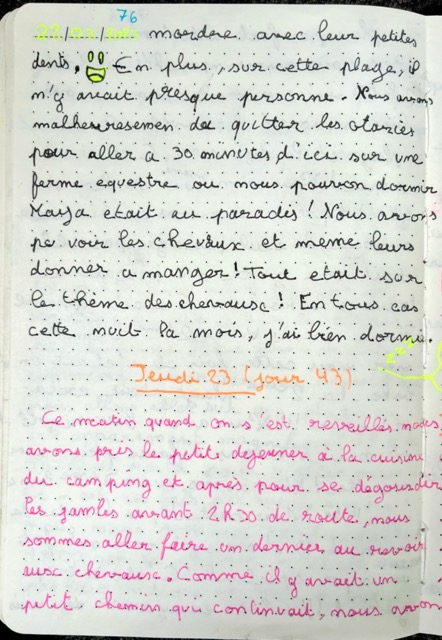 76
mordre avec leur petites
dents. En plus, sur cette plage, il
n'y avait presque personne. Nous avons
malheuresemen du quitter les otaries
pour aller a 30 minutes d'ici sur une
ferme equestre ou nous pouvon dormir
Maya etait au paradis! Nous avons
pu voir les chevaux et meme leurs
donner a manger! Tout etait sur
le thème des chevaux! En tous cas
cette nuit la mois, j'ai bien dormi.
Jeudi 23 (jour 43)
Ce matin quand on s'est reveillés nous
avons pris le petit dejeuner à la cuisine
du camping et après pour se dégourdir
les jambes avant 2h30 de route, nous
sommes aller faire un dernier au revoir
aux chevaux. Comme il y avait un
petit chemin qui continuait, nous avon